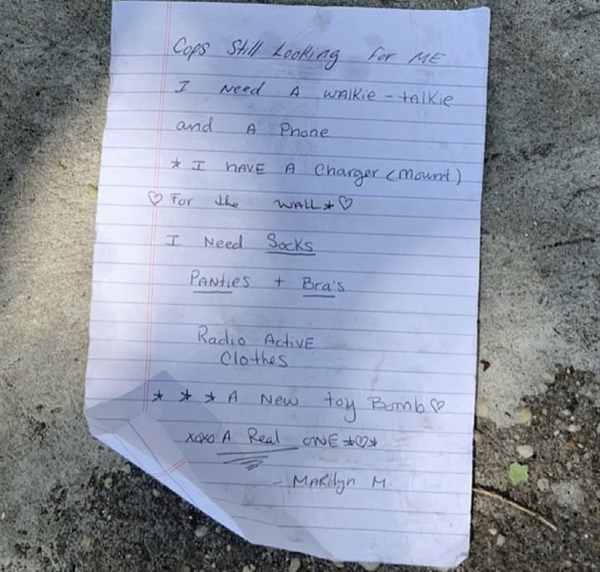 Cops Still Looking For ME
I Need A WALKIE-tALKIE
and A Phone
* I HAVE A Charger (Mount)
♡ For the WALL * ♡
I Need Socks
PANties + Bra's
Radio ActivE
Clothes
* * * A New toy Bomb ♡
xoxo A Real ONE *♡*
- MARilyn M.